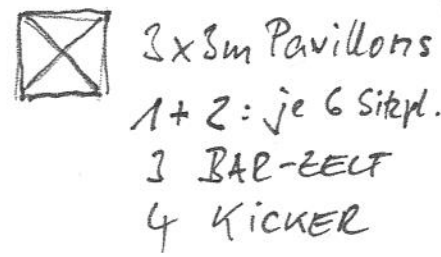 3x3m Pavillons
1+2: je 6 Sitzpl.
3 BAR-ZELT
4 KICKER